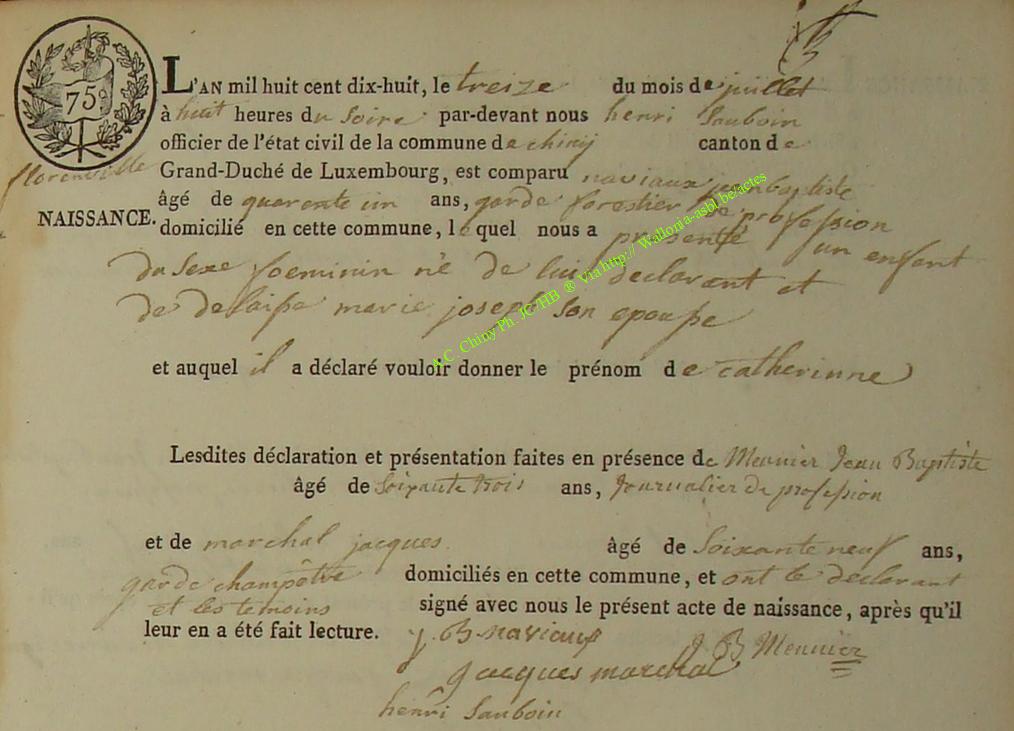 75c
L'AN mil huit cent dix-huit, le treize du mois de juillet
à huit heures du soire par-devant nous henri Sauboin
officier de l'état civil de la commune de chiny canton de
florenville Grand-Duché de Luxembourg, est comparu naviaux jean baptiste
NAISSANCE. âgé de quarente un ans, garde forestier de profession
domicilié en cette commune, lequel nous a présenté un enfant
du sexe foeminin né de lui declarant et
de delaisse marie joseph son epousse
et auquel il a déclaré vouloir donner le prénom de catherinne
Lesdites déclaration et présentation faites en présence de Meunier Jean Baptiste
âgé de soixante trois ans, Journalier de profession
et de marchal jacques âgé de soixante neuf ans,
garde champêtre domiciliés en cette commune, et ont le declarant
et les temoins signé avec nous le présent acte de naissance, après qu'il
leur en a été fait lecture.
j. B naviaux J B Meunier
jacques marchal
henri Sauboin
A.C. Chiny Ph. JC-HB ® Via http:// Wallonia-asbl.be/actes